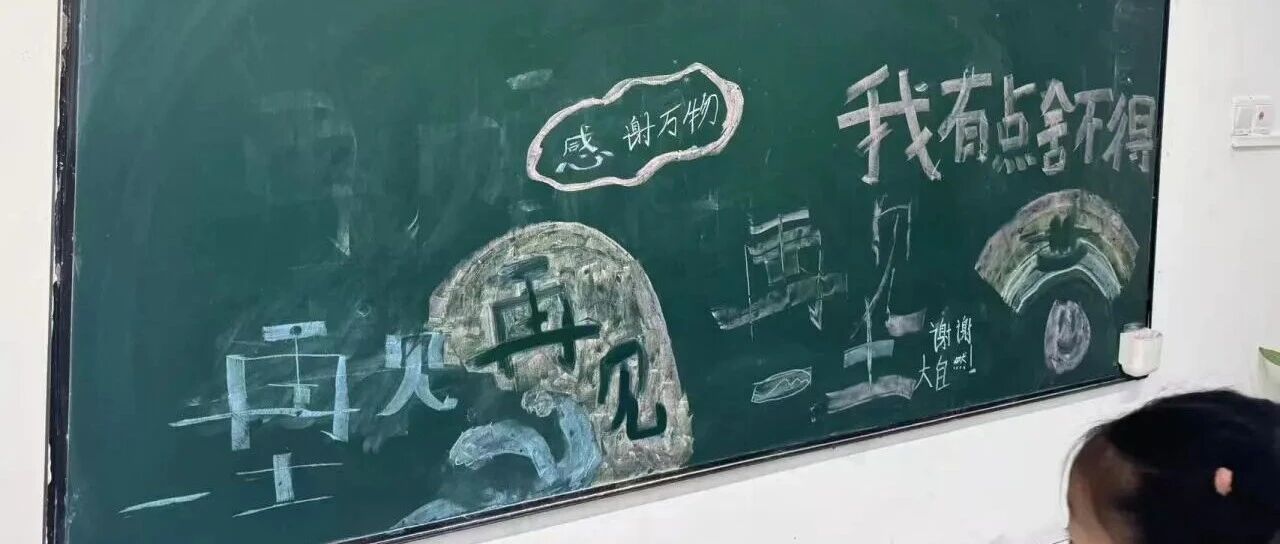 感谢万物
我有点舍不得
再见
一王
再见
再见
二王
谢谢
大自然!